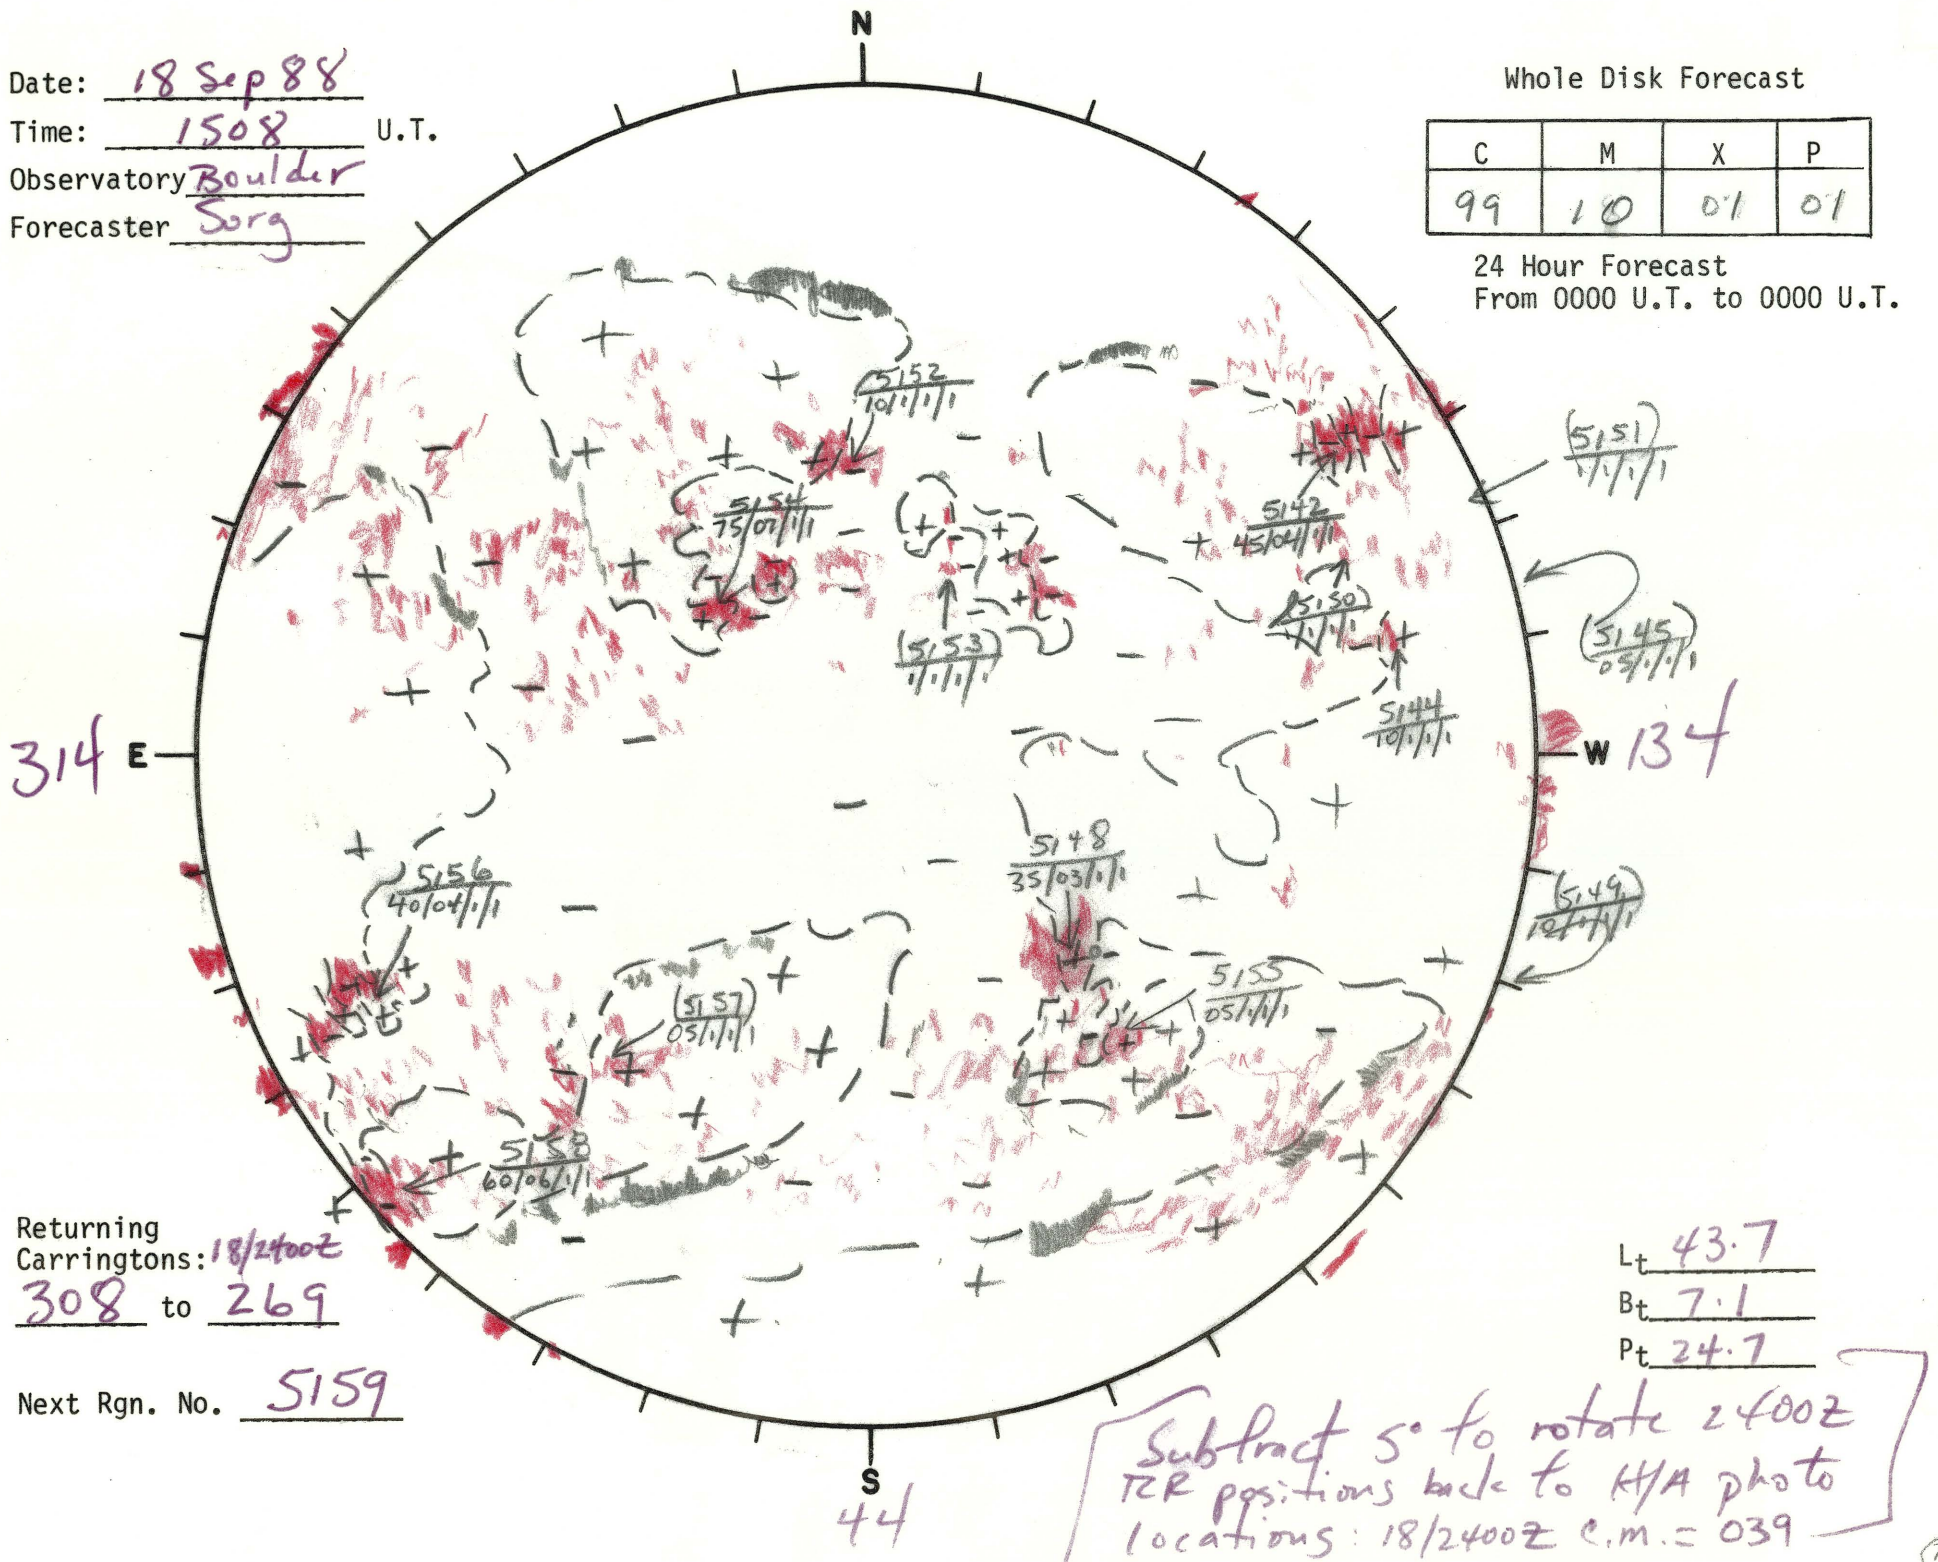 N
Date: 18 Sep 88
Time: 1508 U.T.
Observatory Boulder
Forecaster Sorg
Whole Disk Forecast
C M X P
99 10 01 01
24 Hour Forecast
From 0000 U.T. to 0000 U.T.
5152
10/1/1/1
(5151)
1/1/1/1
5154
75/07/1/1
5142
45/04/1/1
(5150)
1/1/1/1
(5145)
05/1/1/1
(5153)
1/1/1/1
5144
10/1/1/1
314 E
W 134
5148
35/03/1/1
5156
40/04/1/1
(5149)
10/1/1/1
5155
05/1/1/1
(5157)
05/1/1/1
5158
60/06/1/1
Returning
Carringtons: 18/2400Z
308 to 269
Next Rgn. No. 5159
Lt 43.7
Bt 7.1
Pt 24.7
S
44
Subtract 5° to rotate 2400Z
RR positions back to H/A photo
locations: 18/2400Z C.M. = 039